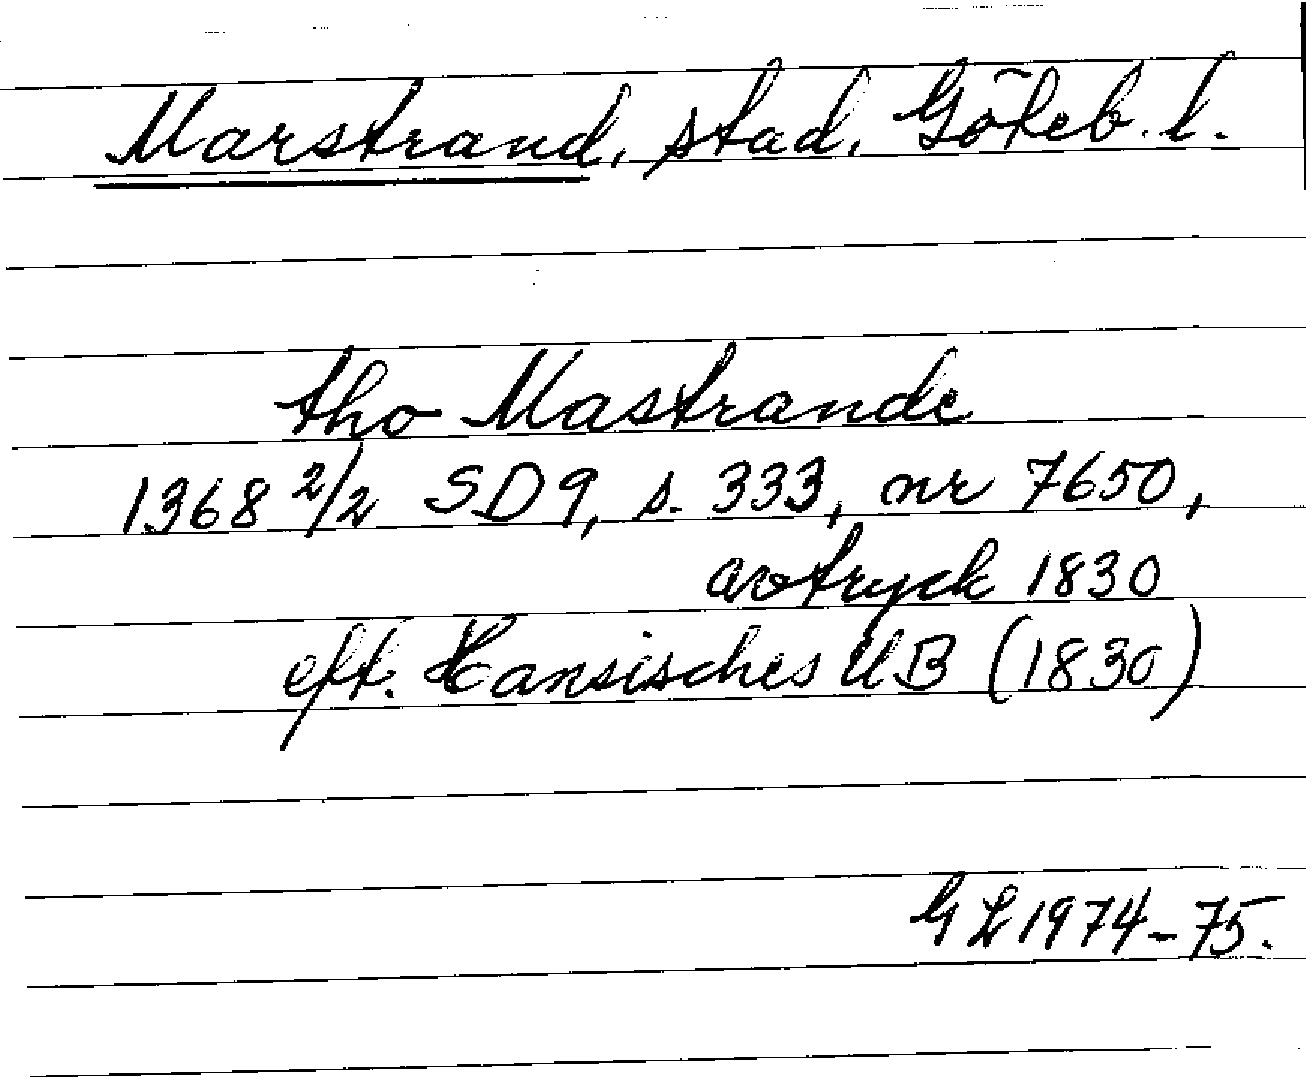 Marstrand, stad, Göteb. l.
tho Mastrande
1368 2/2 SD9, s. 333, nr 7650,
avtryck 1830
eft. Hansisches UB (1830)
GL 1974-75.